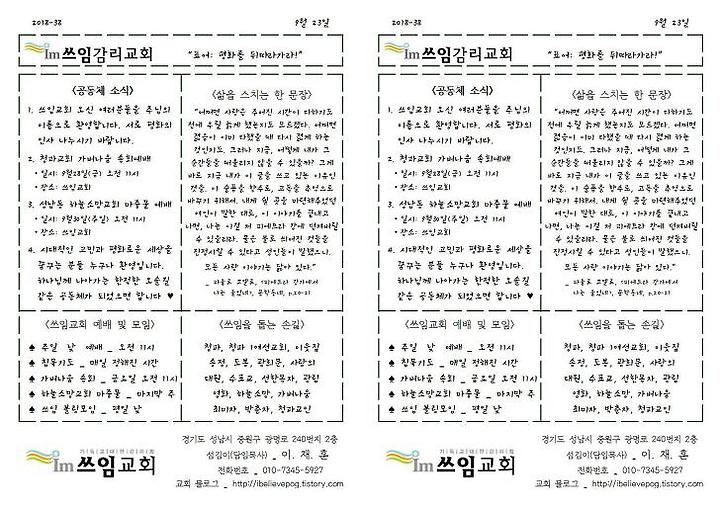 2018-38
9월 23일
Im 쓰임감리교회
"표어: 평화를 뒤따라가라!"
<공동체 소식>
1. 쓰임교회 오신 여러분들을 주님의
이름으로 환영합니다. 서로 평화의
인사 나누시기 바랍니다.
2. 청파교회 가버나움 속회예배
• 일시: 9월28일(금) 오전 11시
• 장소: 쓰임교회
3. 성남동 하늘소망교회 마중물 예배
• 일시: 9월30일(주일) 오전 11시
• 장소: 쓰임교회
4. 시대적인 고민과 평화로운 세상을
꿈꾸는 분들 누구나 환영입니다.
하나님께 나아가는 한적한 오솔길
같은 공동체가 되었으면 합니다 ♥
<삶을 스치는 한 문장>
"어쩌면 사랑은 주어진 시간이 다하기도
전에 우릴 늙게 했는지도 모르겠다. 어쩌면
젊음이 이미 다했을 때 다시 젊게 하는
것인지도. 그러나 지금, 어떻게 내가 그
순간들을 떠올리지 않을 수 있을까? 그게
바로 지금 내가 이 글을 쓰고 있는 이유인
것을. 이 슬픔을 향수로, 고독을 추억으로
바꾸기 위해서. 내게 쉴 곳을 마련해주었던
여인이 말한 대로, 이 이야기를 끝내고
나면, 나는 이걸 저 피에드라 강에 던져버릴
수 있을리라. 물은 불로 씌어진 것들을
진정시킬 수 있다고 성인들이 말했으니.
모든 사랑 이야기는 닮아 있다."
_ 파울로 코엘료, <피에드라 강가에서
나는 울었네>, 문학동네, p.20-21
<쓰임교회 예배 및 모임>
♠ 주일 낮 예배 _ 오전 11시
♠ 침묵기도 _ 매일 정해진 시간
♠ 가버나움 속회 _ 금요일 오전 11시
♠ 하늘소망교회 마중물 _ 마지막 주
♠ 쓰임 볼링모임 _ 평일 낮
<쓰임을 돕는 손길>
청파, 청파 1여선교회, 이음길
손정, 도봉, 광희문, 사랑의
대원, 수표교, 선한목자, 광림
영화, 하늘소망, 가버나움
최미자, 박춘자, 청파교인
기독교대한감리회
Im 쓰임교회
경기도 성남시 중원구 광명로 240번지 2층
섬김이(담임목사) _ 이 재 훈
전화번호 _ 010-7345-5927
교회 블로그 _ http://ibelievepog.tistory.com
2018-38
9월 23일
Im 쓰임감리교회
"표어: 평화를 뒤따라가라!"
<공동체 소식>
1. 쓰임교회 오신 여러분들을 주님의
이름으로 환영합니다. 서로 평화의
인사 나누시기 바랍니다.
2. 청파교회 가버나움 속회예배
• 일시: 9월28일(금) 오전 11시
• 장소: 쓰임교회
3. 성남동 하늘소망교회 마중물 예배
• 일시: 9월30일(주일) 오전 11시
• 장소: 쓰임교회
4. 시대적인 고민과 평화로운 세상을
꿈꾸는 분들 누구나 환영입니다.
하나님께 나아가는 한적한 오솔길
같은 공동체가 되었으면 합니다 ♥
<삶을 스치는 한 문장>
"어쩌면 사랑은 주어진 시간이 다하기도
전에 우릴 늙게 했는지도 모르겠다. 어쩌면
젊음이 이미 다했을 때 다시 젊게 하는
것인지도. 그러나 지금, 어떻게 내가 그
순간들을 떠올리지 않을 수 있을까? 그게
바로 지금 내가 이 글을 쓰고 있는 이유인
것을. 이 슬픔을 향수로, 고독을 추억으로
바꾸기 위해서. 내게 쉴 곳을 마련해주었던
여인이 말한 대로, 이 이야기를 끝내고
나면, 나는 이걸 저 피에드라 강에 던져버릴
수 있을리라. 물은 불로 씌어진 것들을
진정시킬 수 있다고 성인들이 말했으니.
모든 사랑 이야기는 닮아 있다."
_ 파울로 코엘료, <피에드라 강가에서
나는 울었네>, 문학동네, p.20-21
<쓰임교회 예배 및 모임>
♠ 주일 낮 예배 _ 오전 11시
♠ 침묵기도 _ 매일 정해진 시간
♠ 가버나움 속회 _ 금요일 오전 11시
♠ 하늘소망교회 마중물 _ 마지막 주
♠ 쓰임 볼링모임 _ 평일 낮
<쓰임을 돕는 손길>
청파, 청파 1여선교회, 이음길
손정, 도봉, 광희문, 사랑의
대원, 수표교, 선한목자, 광림
영화, 하늘소망, 가버나움
최미자, 박춘자, 청파교인
기독교대한감리회
Im 쓰임교회
경기도 성남시 중원구 광명로 240번지 2층
섬김이(담임목사) _ 이 재 훈
전화번호 _ 010-7345-5927
교회 블로그 _ http://ibelievepog.tistory.com